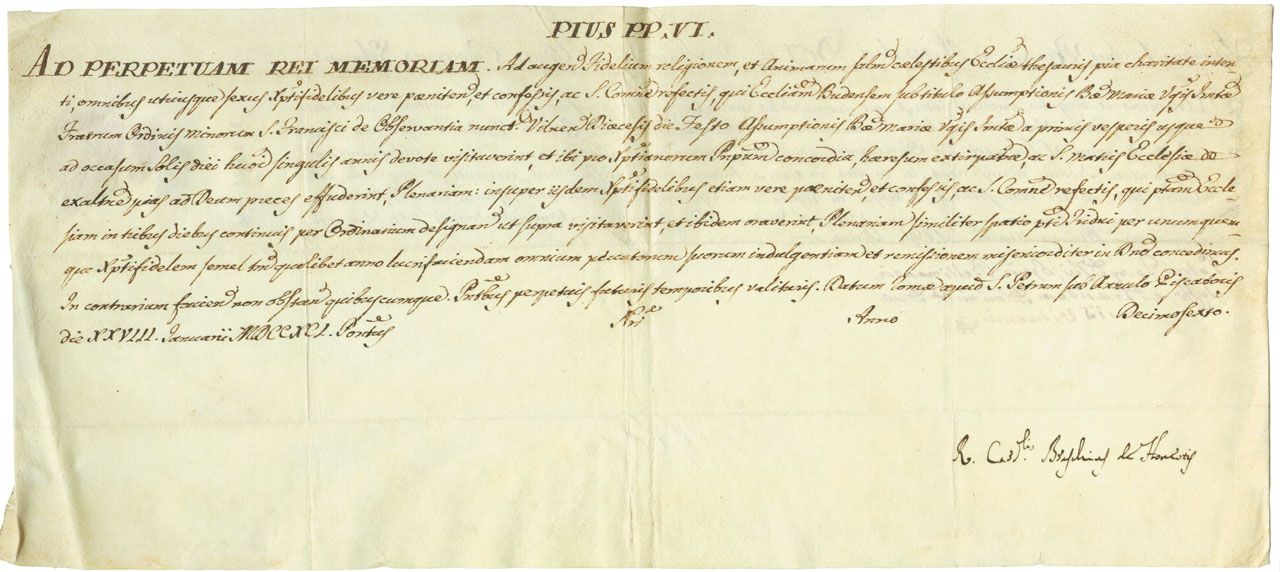 PIUS PP. VI.
AD PERPETUAM REI MEMORIAM. Ad augend Fidelium religionem, et Animarum salem cælestibus Eccliæ thesauris pia charitate inten-
ti, omnibus utriusque sexus Xptifidelibus vere pænitend, et confessis, ac S. Comne refectis, qui Eccliam Budensem sub titulo Assumptionis Bæ Mariæ Vgis Imtæ
Fratrum Ordinis Minorum S. Francisci de Observantia nunct Vilnen Diœcesis die Festo Assumptionis Bæ Mariæ Vgis Imtæ a primis vesperis usque
ad occasum Solis diei hujdi singulis annis devote visitaverint, et ibi pro Xptianorum Pnpum concordia hæresum extirpatne, ac S. Matris Ecclesiæ
exaltne pias ad Deum preces effuderint, Plenariam: insuper iisdem Xptifidelibus etiam vere pæniten, et confessis, ac S. Comne refectis, qui ptam Eccle-
siam in tribus diebus continuis per Ordinarium designan ut supra visitaverint, et ibidem oraverint, Plenariam similiter spatio pti Tridui per unumquem
que Xptifidelem semel tm quolibet anno lucrifaciendam omnium peccatorum suorum indulgentiam et remissionem misericorditer in Dno concedimus.
In contrarium facien non obstan quibuscumque. Pntbus perpetuis futuris temporibus valituris. Datum Romæ apud S. Petrum sub Annulo Piscatoris
die XXVIII. Januarii MDCCXCI. Pontus Nri Anno Decimosexto.
R. Card. Braschius de Honestis